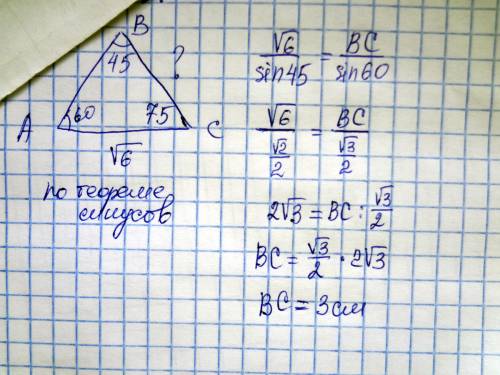 B
45
?
A
60
75
C
√6
по теореме
синусов
√6/sin45 = BC/sin60
√6/(√2/2) = BC/(√3/2)
2√3 = BC : √3/2
BC = √3/2 · 2√3
BC = 3см